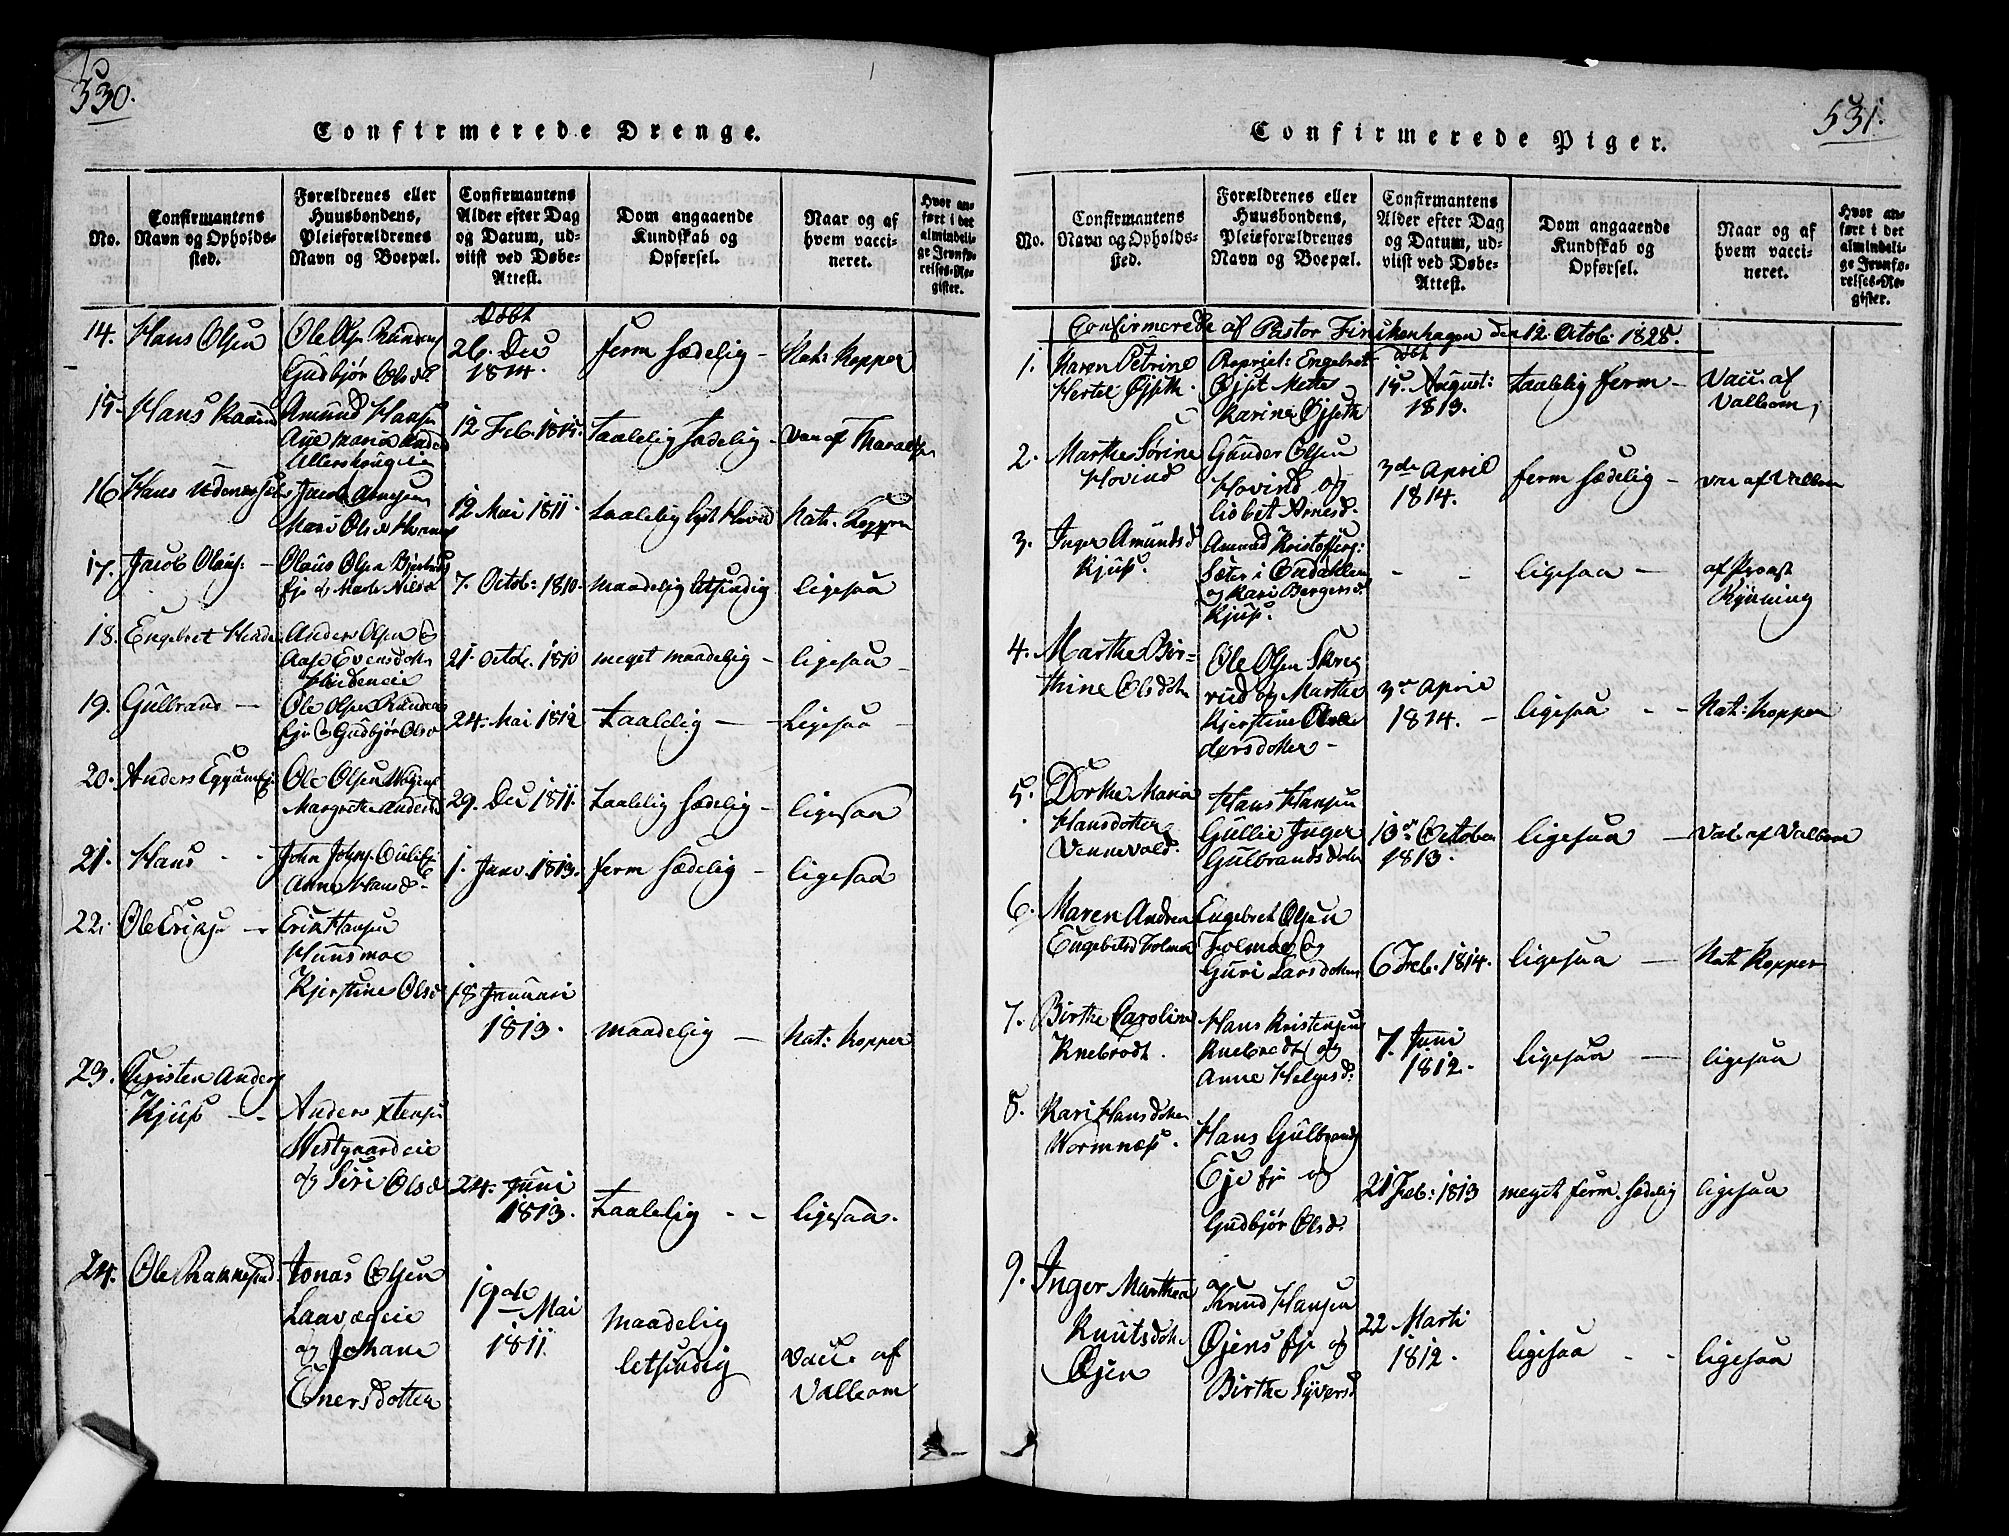 530.
Confirmerede Drenge.
No.
Confirmantens Navn og Opholdssted.
Forældrenes eller Huusbondens, Pleieforældrenes Navn og Boepæl.
Confirmantens Alder efter Dag og Datum, udviist ved Døbe-Attest.
Dom angaaende Kundskab og Opførsel.
Naar og af hvem vaccineret.
Hvor anført i det almindelige Jevnførelses-Register.
14. Hans Olsen
Ole Ols.
Gudbjør Olsd.
Døbt
26. Dec
1814.
ferm sædelig -
Nat: Kopper
15. Hans
Amund Hans
Ane Maria
12 Feb. 1815.
taalelig sædelig -
Vac af
16 Hans
Jacob
Mari Olsd.
12 Mai 1811.
taalelig
Nat. Kopper
17. Jacob Olaus. -
Olaus Olsen
Eje og Marte Nilsd
7. Octob: 1810.
maadelig letsindig
ligesaa
18. Engebret
Anders Olsen
Aase Evensdotr
21. Octob. 1810
meget maadelig -
ligesaa -
19. Gulbrand -
Ole Olsen
Eje Gudbjør Olsd
24. Mai 1812
taalelig -
Ligesaa -
20. Anders
Ole Olsen
Margrethe Andersd
29. Dec 1811.
taalelig sædelig -
ligesaa
21. Hans - -
John Johns.
Anne Hansd -
1. Janv. 1813.
ferm sædelig -
ligesaa
22. Ole Eriks -
Erik Hansen
Huusmoe
Kjerstine Olsd
18 Januari
1813.
maadelig -
Nat: Kopper
23. Christen Anders
Kjus - -
Anders Xtensen
Westgaardeie
og Siri Olsd
24. Juni
1813.
taalelig - -
ligesaa.
24. Ole
Jonas Olsen
og Johane
Enersdotter
19de Mai
1811.
maadelig
letsindig
Vacc. af
Valleom
531.
Confirmerede Piger.
No.
Confirmantens Navn og Opholdssted.
Forældrenes eller Huusbondens, Pleieforældrenes Navn og Boepæl.
Confirmantens Alder efter Dag og Datum, udviist ved Døbe-Attest.
Dom angaaende Kundskab og Opførsel.
Naar og af hvem vaccineret.
Hvor anført i det almindelige Jevnførelses-Register.
Confirmerede af Pastor Finkenhagen den 12. Octob: 1828.
1. Karen Petrine
Hertee Øjset.
Propriet: Engebret
Øjset Mette
Karine Øjseth
døbt
15 August:
1813.
taalelig ferm -
Vacc. af
Valleom
2. Marthe Sørine
Hovind
Gunder Olsen
Hovind og
Lisbet Arnesd.
3de April
1814.
ferm sædelig -
vac af Valleom
3. Inger Amundsd
Kjus.
Amund Kristoffers:
og Kari Bergersd.
Kjus.
- -
ligesaa -
af Provst
4. Marthe Bir-
thine Olsdotr
Ole Olsen Skreg
rud og Marthe
Kjerstine
dersdotter -
3de April
1814. -
ligesaa - -
Nat: Kopper
5. Dorthe Maria
Hansdotter
Vennevold.
Hans Hansen
Gullie Inger
Gulbrandsdotr
October
1813.
ligesaa -
Vac. af Valleom
6. Maren Andrea
Engebretsd Holmoe
Engebret Olsen
Holmoe og
Guri Larsdotter
6 Feb. 1814.
ligesaa -
Nat. Kopper
7. Birthe Caroline
Knebrodt.
Hans Kristensen
Knebrodt og
Anne Helgesd:
7. Juni
1812.
ligesaa -
ligesaa
8. Kari Hansdotter
Wormnæss.
Hans Gulbrands
Eje og
Gudbjør Olsd.
21 Feb: 1813
meget ferm. sædelig
ligesaa
9. Inger Marthea
Knutsdotr
Øjen
Knud Hansen
Øjens Eje og
Birthe Syversd
22 Marti
1812.
ligesaa - -
ligesaa